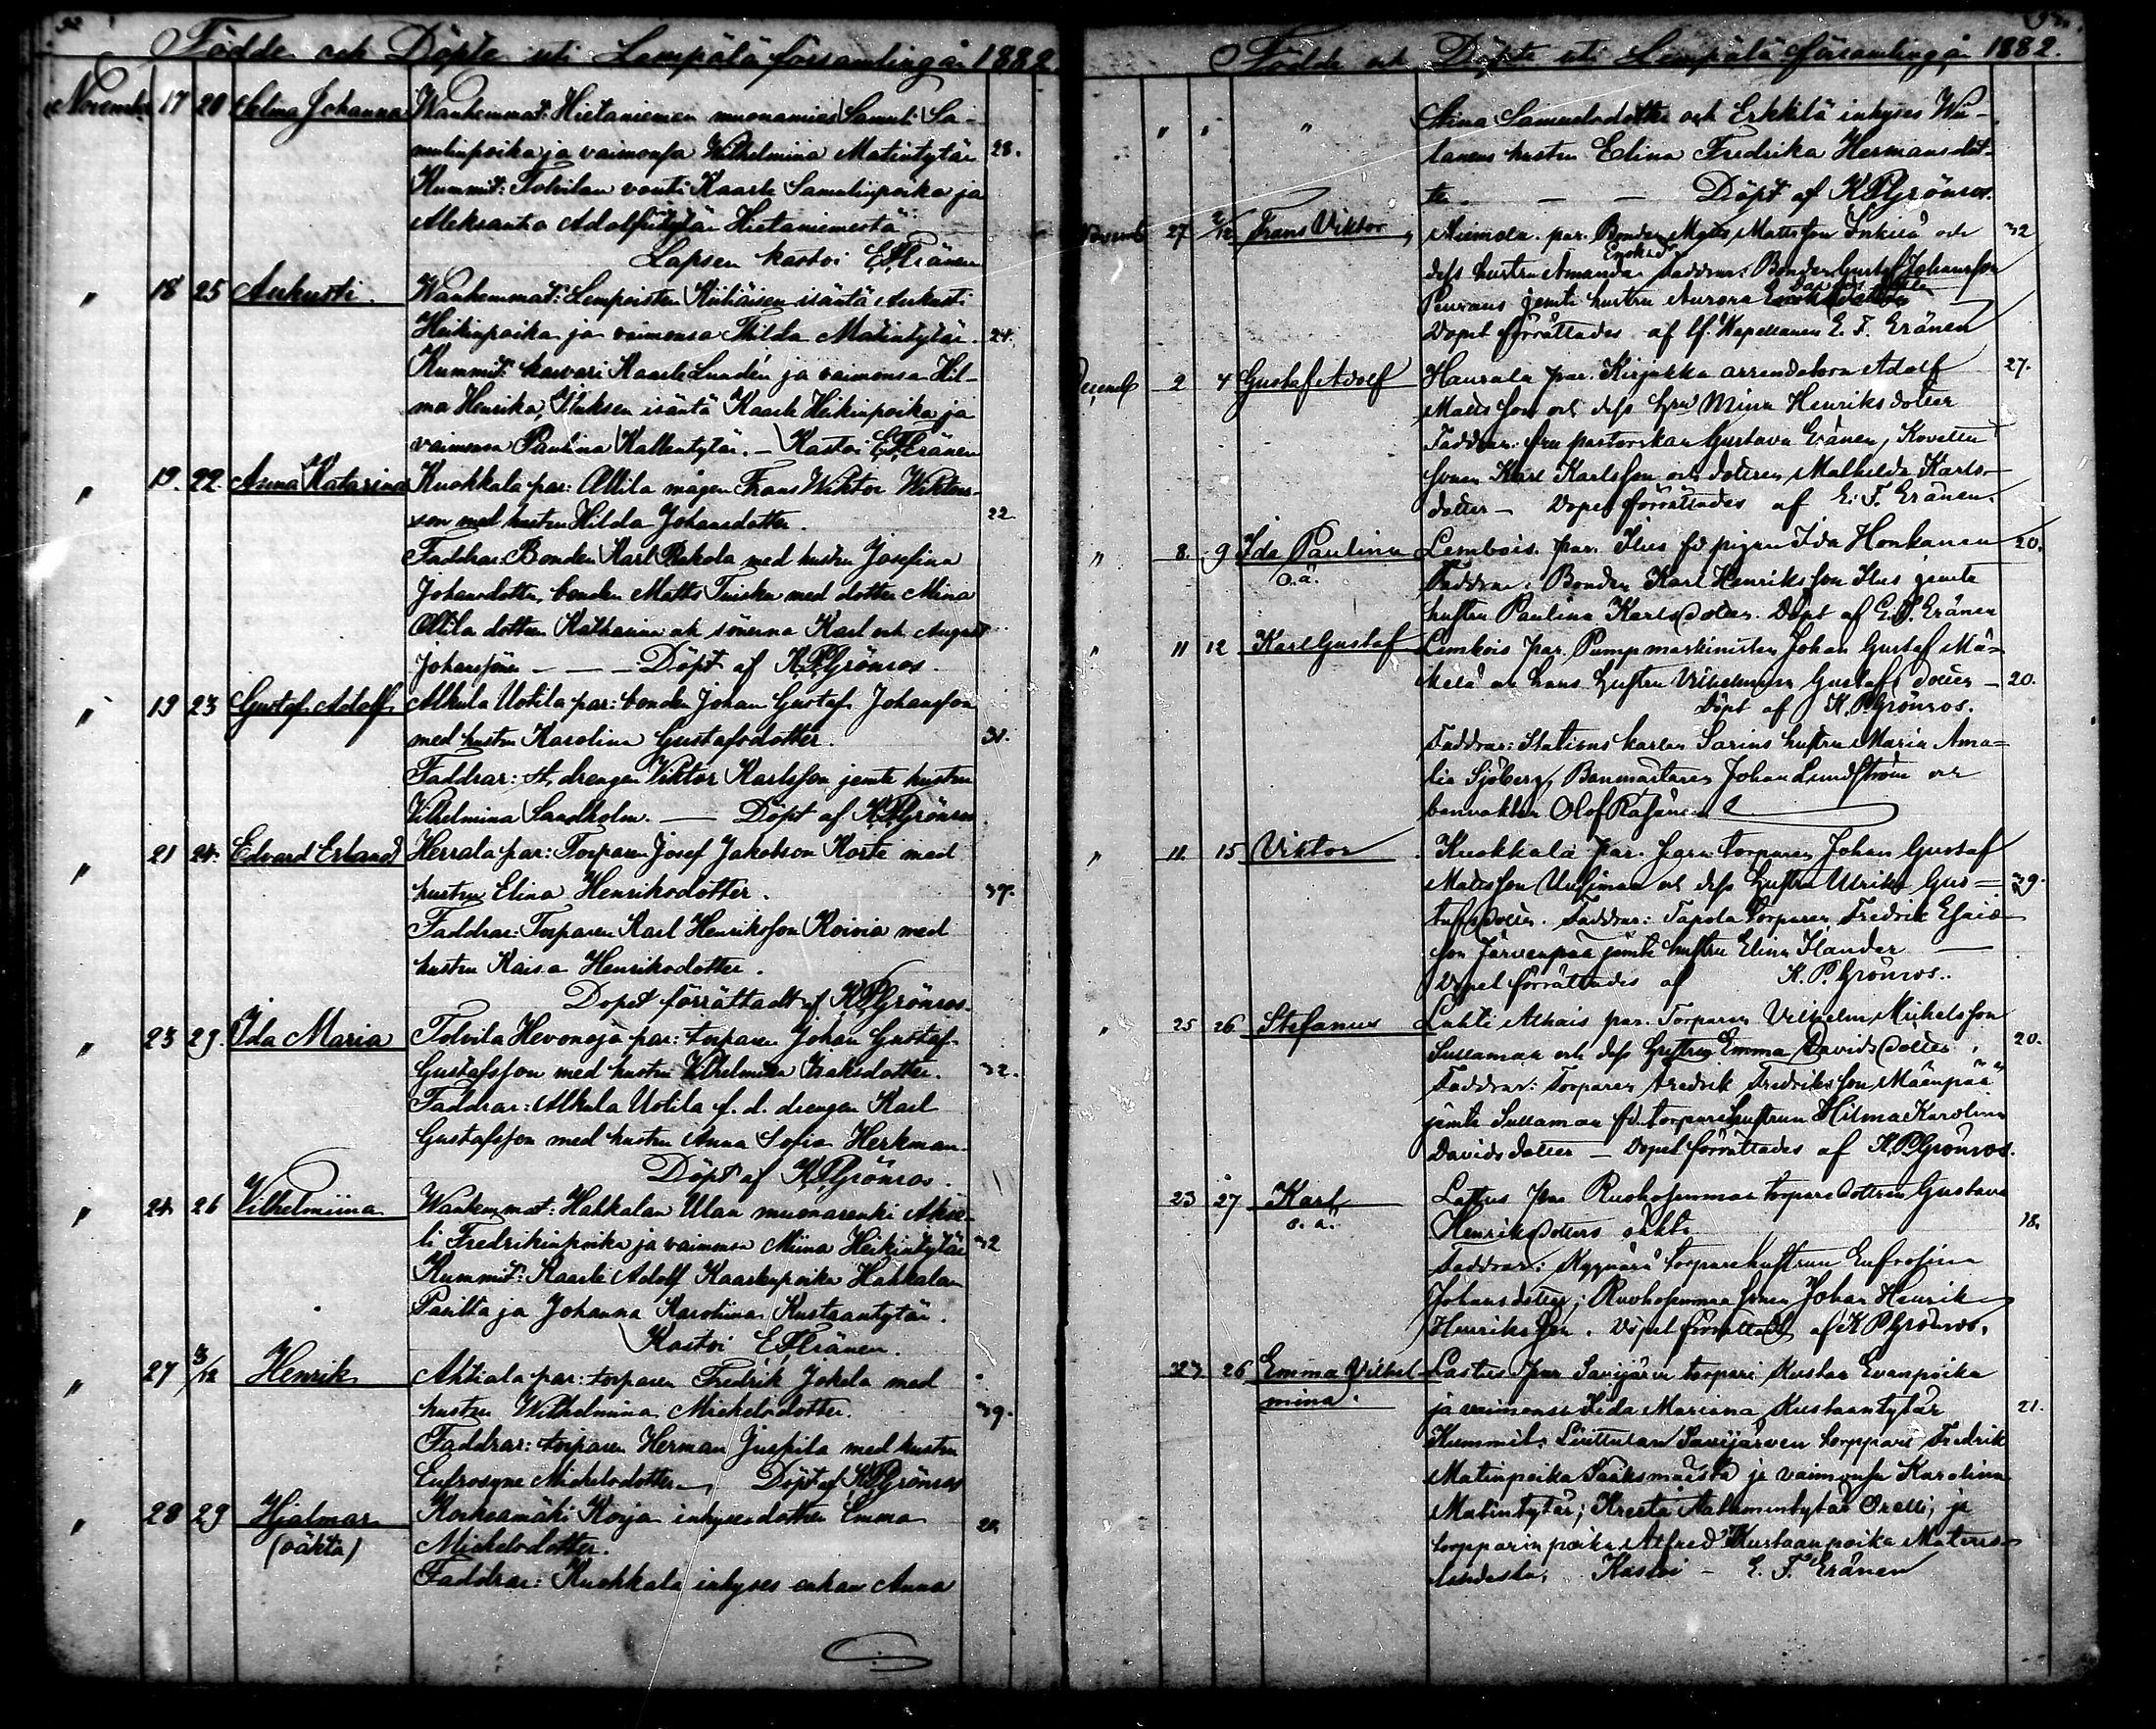 Födde och Döpte uti Lempälä församling år 1882.
November 17 20 Selma Johanna Wanhemmat: Hietaniemen muonamies Samuli Sa-
mulinpoika ja vaimonsa Wilhelmina Matintytär 28.
Kummit: Tolvilan vouti Kaarle Samulinpoika ja
Aleksanta Adolfintytär Hietaniemestä
Lapsen kastoi E. F. Eränen
" 18 25 Aukusti. Wanhemmat: Lempoisten isäntä Aukusti
Heikinpoika ja vaimonsa Hilda Matintytär. 24.
Kummit: Kaarle Lundén ja vaimonsa Hil-
ma Henrika, isäntä Kaarle Heikinpoika ja
vaimonsa Paulina Kallentytär. — Kastoi E. F. Eränen
" 19. 22. Anna Katarina Kuokkala par: Ollila mågen Frans Wiktor Wiktors-
son med hustru Hilda Johansdotter. 22
Faddrar: Bonden Karl med hustru Josefina
Johansdotter, bonden Matts med dotter Mina
Ollila dottern Katharina och sönerna Karl och August
Johanssöner — — — Döpt af K. P. Grönroos.
" 19 23 Gustaf Adolf Alkula Uotila par: bonden Johan Gustaf Johansson
med hustru Karolina Gustafsdotter. 31.
Faddrar: drengen Viktor Karlsson jemte hustru
Vilhelmina Sandholm. — Döpt af K. P. Grönroos
" 21 24. Edvard Erland Herrala par: Torparen Josef Jakobson Korte med
hustru Elina Henriksdotter. 37.
Faddrar: Torparen Karl Henriksson Koivia med
hustru Kaisa Henriksdotter.
Dopet förrättadt af K. P. Grönroos.
" 23 29. Ida Maria Tolvila Hevonoja par: torparen Johan Gustaf
Gustafsson med hustru Wilhelmina Isaksdotter. 32.
Faddrar: Alkula Uotila f. d. drengen Karl
Gustafsson med hustru Anna Sofia Herkman.
Döpt af K. P. Grönroos.
" 24 26 Vilhelmiina Wanhemmat: Hakkalan Ulan muonarenki Akse-
li Fredrikinpoika ja vaimonsa Miina Heikintytär 32
Kummit: Kaarle Adolf Kaarlenpoika Hakkalan
ja Johanna Karoliina Kustaantytär.
Kastoi E. F. Eränen.
" 27 3/12 Henrik Ahtiala par: torparen Fredrik Jokela med
hustru Wilhelmina Michelsdotter. 39.
Faddrar: torparen Herman Juspila med hustru
Eufrosyne Michelsdotter — Döpt af K. P. Grönroos
" 28 29 Hjalmar Korkeamäki Korja inhyses dotter Emma 20.
(oäkta) Michelsdotter.
Faddrar: Kuokkala inhyses enkan Anna
Födde och Döpte uti Lempälä församling år 1882.
" " " Stina Samuelsdotter och Erkkilä inhyses Wii-
tanens hustru Elina Fredrika Hermansdot-
ter. — — Döpt af K. P. Grönroos.
Novemb 27 2/12 Frans Viktor, Niemola par. Bonden Matts Mattsson Inkilä och 32
dess hustru Amanda Enoksdr Faddrar: Bonden Gustaf Johansson
Peurans jemte hustru Aurora
Dopet förrättades af tf. Kapellanen E. F. Eränen
Decemb 2 4 Gustaf Adolf Haurala par. Kirjakka arrendatorn Adolf 27.
Mattsson och dess hru Mina Henriksdotter
Faddrar: fru pastorskan Gustava Eränen,
sonen Karl Karlsson och dottren Mathilda Karls-
dotter — Dopet förrättades af E. F. Eränen.
" 8. 9 Ida Paulina Lembois. par. Ilus fd pigan Ida Honkanen 20.
o.ä. Faddrar: Bonden Karl Henriksson Ilus jemte
hustru Paulina Karlsdotter. Döpt af E. F. Eränen
" 11 12 Karl Gustaf Lembois par. Pumpmaskinisten Johan Gustaf Mä-
kelä och hans hustru Vilhelmina Gustafsdotter — 20.
Döpt af K. P. Grönroos.
Faddrar: Stationskarlen Sarins hustru Maria Ama-
lia Sjöberg, Banmästaren Johan Lundström och
banvakten Olof Räsänen
" 11 15 Viktor Kuokkala par. torparen Johan Gustaf
Mattsson Uusimaa och dess hustru Ulrika Gus- 39.
tafsdotter. Faddrar: Tapola torparen Fredrik Esais-
son Järvenpää jemte hustru Elina Ilander —
Dopet förrättades af K. P. Grönroos.
" 25 26 Stefanus Lahti Alhais par. Torparen Vilhelm Michelsson
Sullaman och dess hustru Emma Davidsdotter, 20.
Faddrar: Torparen Fredrik Fredriksson Mäenpää
jemte Sullaman fd. torparehustrun Hilma Karolina
Davidsdotter — Dopet förrättades af K. P. Grönroos.
23 27 Karl Lastus par Ruohosenmaa torparedottren Gustava
o.ä. Henriksdotters oäkta 18.
Faddrar: torparehustrun Eufrosina
Johansdotter; Ruohosenmaa sonen Johan Henrik
Henriksson. Dopet förrättadt af K P Grönroos.
23 26 Emma Vilhel- Lastus par Savijärvi torpari Kustaa Evanpoika
mina. ja vaimonsa Iida Mariana Kustaantytär 21.
Kummit: Savijärven torppari Fredrik
Matinpoika Sääksmäestä ja vaimonsa Karolina
Matintytär; Kresta ja
torpparin poika Alfred Kustaanpoika
Kastoi — E. F. Eränen